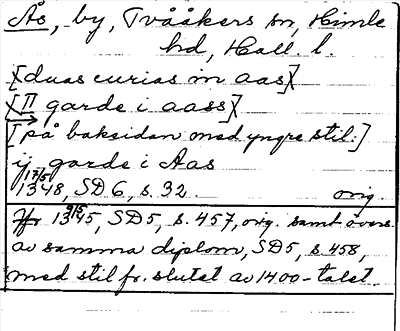 Ås, by, Tvååkers sn, Himle
hd, Hall. l.
[duas curias in aas]
[II garde i aass]
[på baksidan med yngre stil.]
ij garde i Aas
17/5
1348, SD 6, s. 32. orig.
Jfr 1345 9/5, SD5, s. 457, orig. samt övers.
av samma diplom, SD5, s. 458,
med stil fr. slutet av 1400-talet.